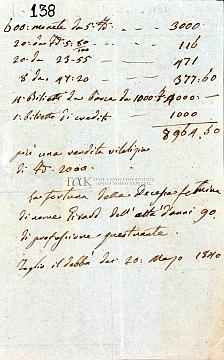 138
600: monete da 5: fr. — 3000
20: da fr. 5: 80/100 — 116
20 da 23-55 — 471
8 da 47:20 — 377.60
4: Biglietti da Banca da 1000 fr. 4000: —
1: biglietto di credito 1000
8964.60
più una rendita vitalizia
di fr. 2000.
La fortuna della Decessa femina
di nome Pirard dell'attà d'anni 90
di professione questuante.
Maggio 1840